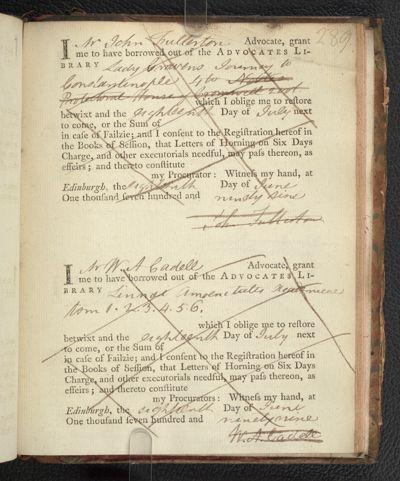 289.
I Mr John Fullerton Advocate, grant
me to have borrowed out of the ADVOCATES LI-
BRARY Lady Cravens Journey to
Constantinople 4to Nobles
Protectoral House of Cromwell 2 vol
which I oblige me to restore
betwixt and the eighteenth Day of July next
to come, or the Sum of
in case of Failzie; and I consent to the Registration hereof in
the Books of Session, that Letters of Horning on Six Days
Charge, and other executorials needful, may pass thereon, as
effeirs; and thereto constitute
my Procurator: Witness my hand, at
Edinburgh, the eighteenth Day of June
One thousand seven hundred and ninety nine
John Fullerton
I Mr W. A. Cadell Advocate, grant
me to have borrowed out of the ADVOCATES LI-
BRARY Linnæi Amoenitates Academicæ
tom 1. 2. 3. 4. 5. 6.
which I oblige me to restore
betwixt and the eighteenth Day of July next
to come, or the Sum of
in case of Failzie; and I consent to the Registration hereof in
the Books of Session, that Letters of Horning on Six Days
Charge, and other executorials needful, may pass thereon, as
effeirs; and thereto constitute
my Procurators: Witness my hand, at
Edinburgh, the eighteenth Day of June
One thousand seven hundred and ninety nine
W. A. Cadell